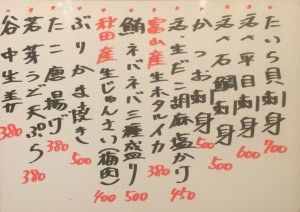 ・たいら貝刺身 700
・活〆平目刺身 600
・活〆石鯛刺身 500
・かつお刺身 500
・活・生だこ胡麻塩かけ 450
・富山産生ホタルイカ 380
・鮪ネバネバ三種盛り 500
・秋田産生じゅんさい(梅肉) 400
・ぶりかま焼き 500
・たこ唐揚げ 380
・若芽うど天ぷら 380
・谷中生姜 380